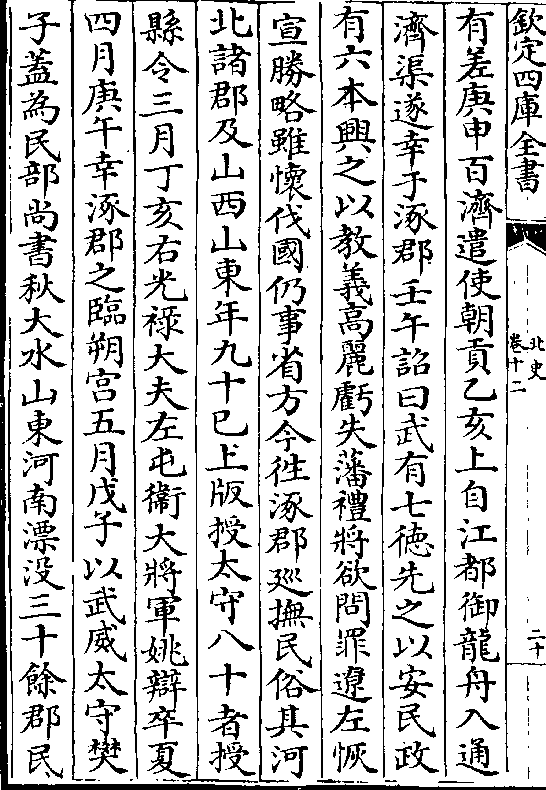 欽定四庫全書
北史
卷十二
二十
有差庚申百濟遣使朝貢乙亥上自江都御龍舟入通
濟渠遂幸于涿郡壬午詔曰武有七徳先之以安民政
有六本興之以教義高麗虧失藩禮將欲問罪遼左恢
宣勝略雖懷伐國仍事省方今徃涿郡廵撫民俗其河
北諸郡及山西山東年九十已上版授太守八十者授
縣令三月丁亥右光祿大夫左屯衞大將軍姚辯卒夏
四月庚午幸涿郡之臨朔宫五月戊子以武威太守樊
子葢為民部尚書秋大水山東河南漂没三十餘郡民